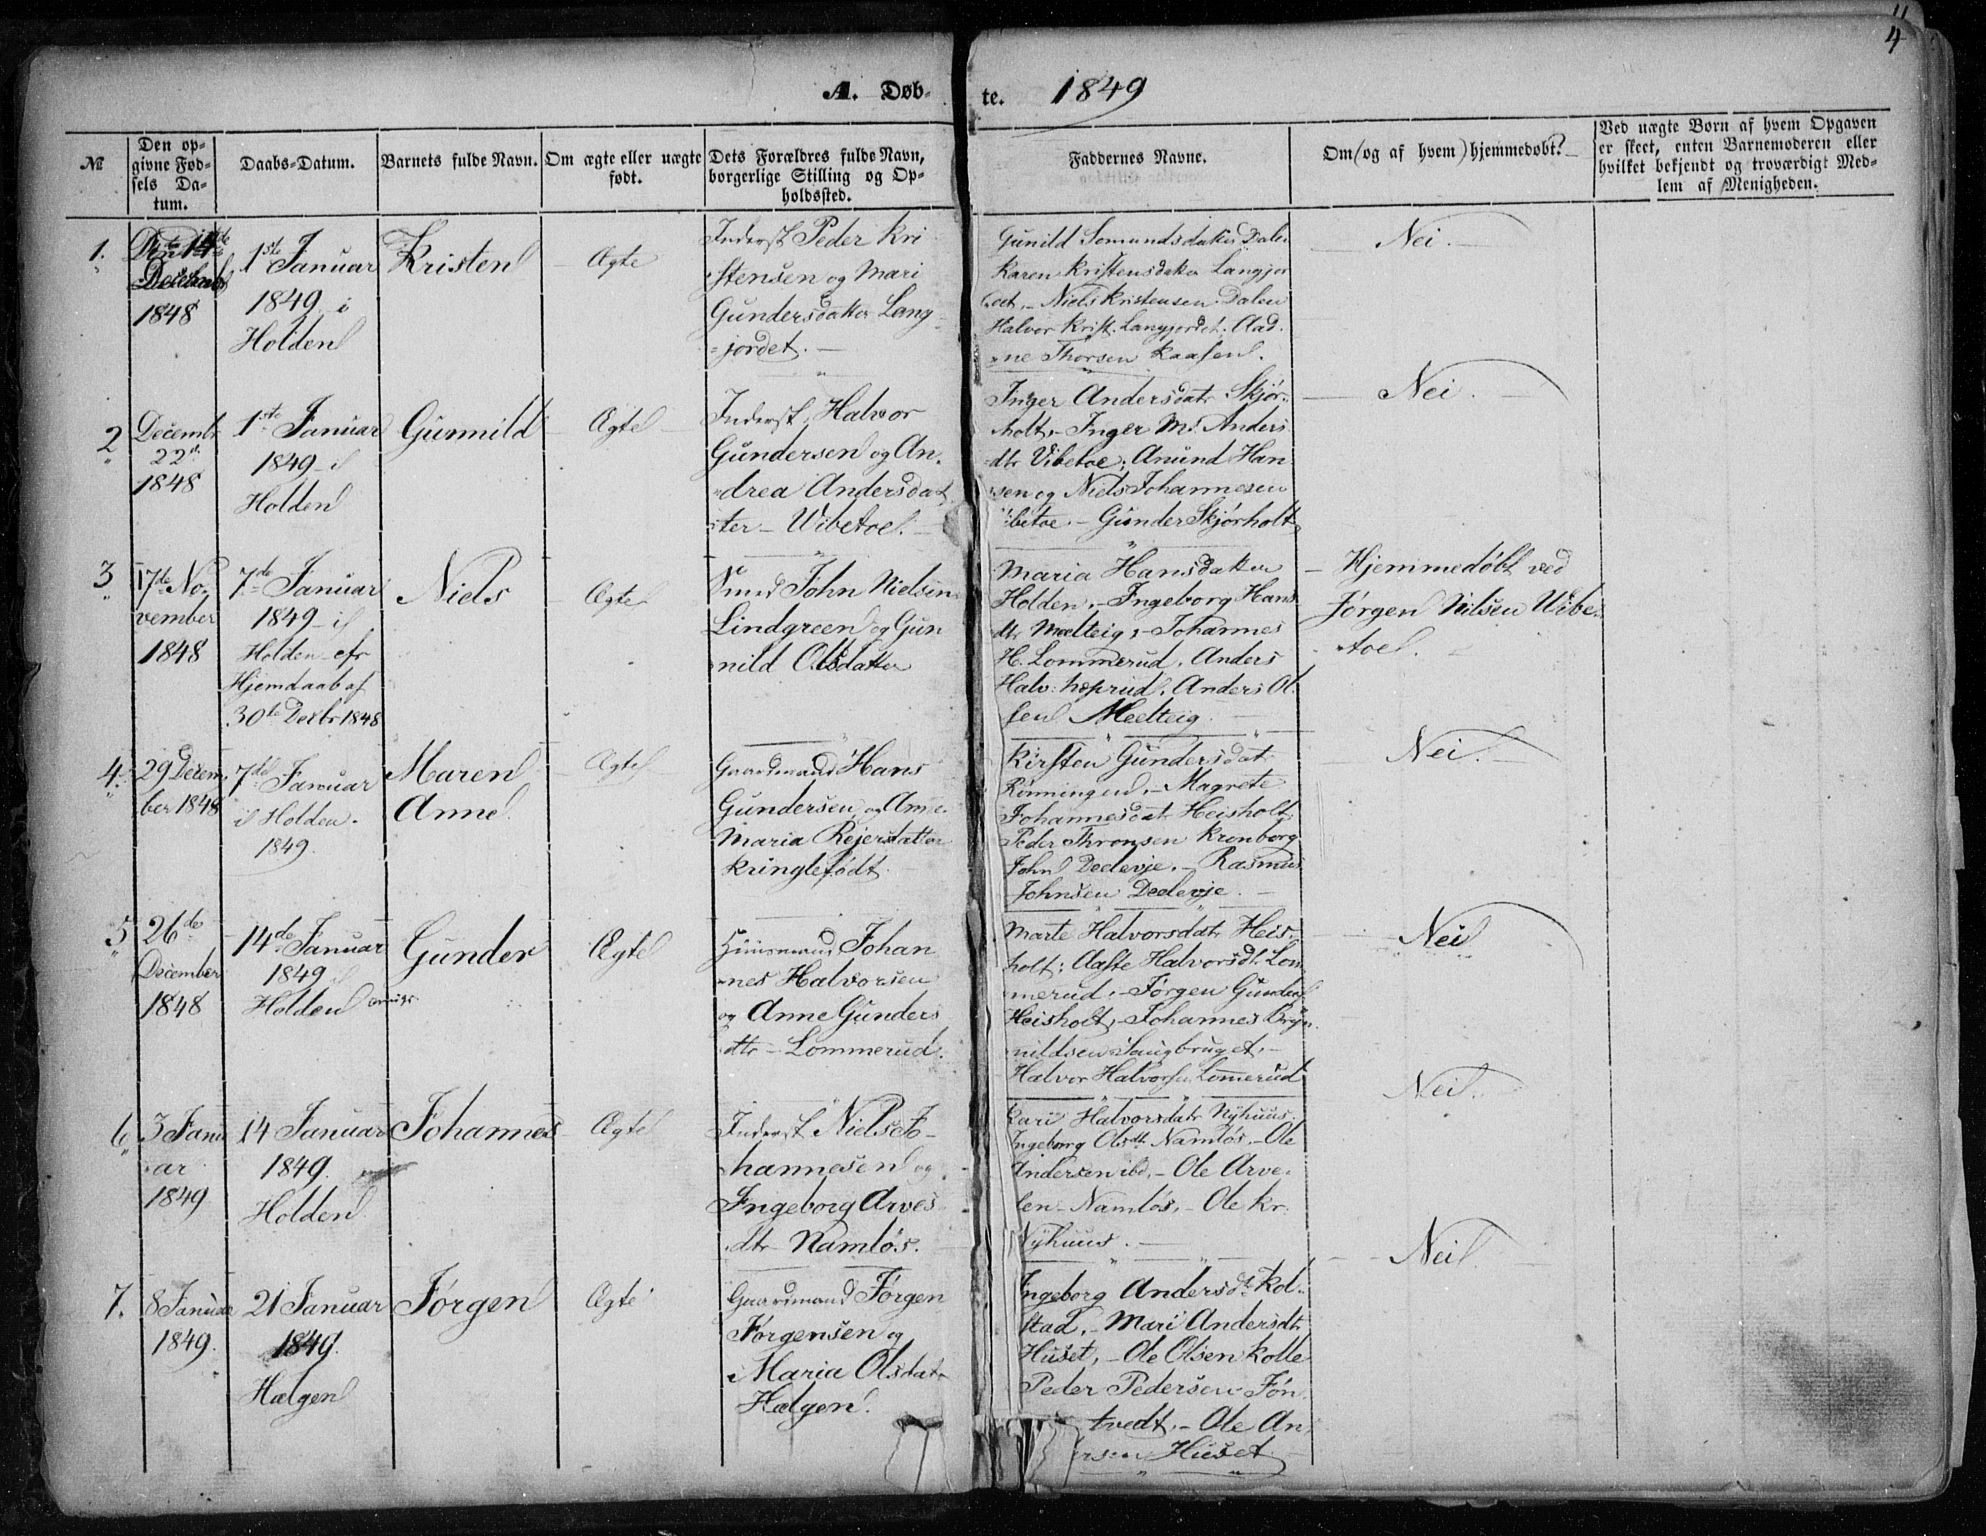 4
A. Døb- te. 1849
№
Den op-
givne Fød-
sels Da-
tum.
Daabs-Datum.
Barnets fulde Navn.
Om ægte eller uægte
født.
Dets Forældres fulde Navn,
borgerlige Stilling og Op-
holdssted.
Faddernes Navne.
Om (og af hvem) hjemmedøbt?
Ved uægte Børn af hvem Opgaven
er skeet, enten Barnemoderen eller
hvilket bekjendt og troværdigt Med-
lem af Menigheden.
1.
1848
1ste Januar
1849 i
Holden
Kristen
Ægte
Inderst Peder Kri
stensen og Mari
Gundersdatter Lang
jordet.
Gunild Somundsdatter Dalen
Karen Kristensdatter Langjor
det, - Niels Kristensen Dalen
Halvor Krist. Langjordet. Aad-
ne Thorsen Kaasen.
Nei.
2
Decembr
22
1848
1ste Januar
1849 i
Holden
Gunnild
Ægte
Inderst, Halvor
Gundersen og An-
drea Andersdat
ter - Wibetoe.
Inger Andersdatr Skjør-
holt, - Inger M. Anders
dtr Vibetoe, Anund Han
sen og Niels Johannesen
ibetoe. - Gunder Skjørholt
Nei.
3
17de No-
vember
1848
7de Januar
1849 i
Holden efr
Hjemdaab af
30te Decbr 1848
Niels
Ægte
John Nielsen
Lindgreen og Gun
nild Olsdatter
Maria Hansdatter
Holden, - Ingeborg Hans
dtr Mælteig, - Johannes
H. Lommerud, Anders
Halv: Anders Ol-
sen Meelteig.
Hjemmedøbt ved
Jørgen Nilsen Wibe-
toe.
4.
29 Decem-
ber 1848
7de Januar
i Holden.
1849.
Maren
Anne
Ægte
Gaardmand Hans
Gundersen og Anne
Maria Rejersdatter
Kringlefødt.
Kirsten Gundersdat
Rönningen, - Magrete
Johannesdat Heisholt
Peder Thronsen Kronborg
John Deelevje. - Rasmus
Johnsen Deelevje.
Nei.
5
26de
December
1848
14de Januar
1849 i
Holden
Gunder
Ægte
Huusmand Johan
nes Halvorsen
og Anne Gunders
dtr - Lommerud.
Marte Halvorsdatr Heis-
holt; Aaste Halvorsdtr Lom
merud, - Jørgen Gunders
Heisholt, - Johannes Bryn
nildsen Saugbruget, -
Halvor Halvorsen Lomerud
Nei
6
3 Janu
ar
1849
14 Januar
1849.
Holden
Johannes
Ægte
Inderst Niels Jo-
hannesen og
Ingeborg Arves
dtr - Namløs.
Kari Halvorsdatr Nyhuus.
Ingeborg Olsdtr Namløs, - Ole
Andersen ibd, - Ole Arve-
sen - Namløs, - Ole Kr.
Nyhuus.
Nei.
7.
8 Januar
1849.
21 Januar
1849.
Hælgen
Jørgen
Ægte
Gaardmand Jørgen
Jørgensen og
Maria Olsdatr
Hælgen.
Ingeborg Andersdtr Kol-
stad, - Mari Andersdtr
Huset, - Ole Olsen Kolle
Peder Pedersen Jøn
tvedt, - Ole An-
ersen Huset
Nei